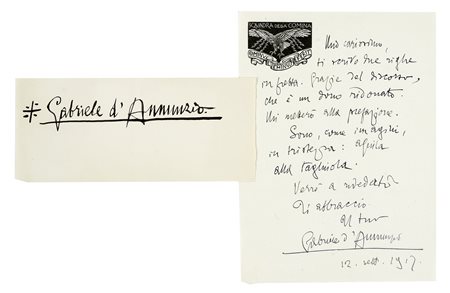 Gabriele d'Annunzio.
SQUADRA DELLA COMINA
Mio carissimo,
ti scrivo due righe
in fretta. Grazie del discorso,
che è un dono ridonato.
Mi metterò alla prefazione.
Sono, come imagini,
in tristezza:
alla
Verrò a rivederti?
Ti abbraccio.
Il tuo
Gabriele d'Annunzio
12. sett. 1917.